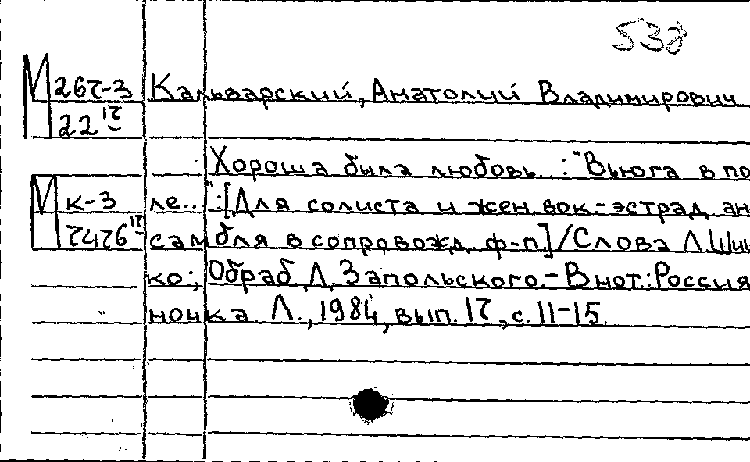 538
М 267-3 Кальварский, Анатолий Владимирович
22 17
Хороша была любовь : "Вьюга в по
М к-3 ле..." : [Для солиста и жен. вок.-эстрад. ан
7476 17 самбля в сопровожд. ф-п] / Слова Л. Шиш
ко; Обраб. Л. Запольского. - В нот.: Россия
ночка Л., 1984, вып. 17, с. 11-15